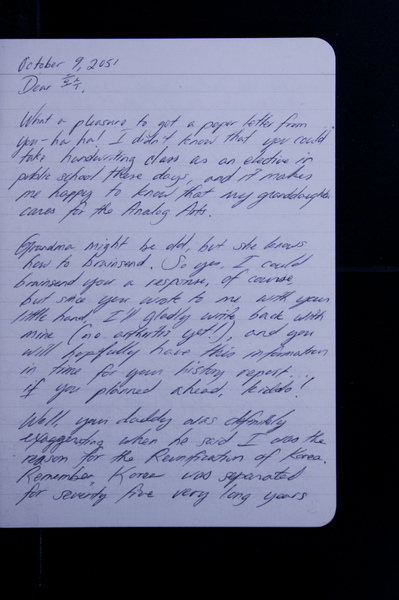 October 9, 2051
Dear 호수,
What a pleasure to get a paper letter from
you–ha ha! I didn't know that you could
take handwriting class as an elective in
public school these days, and it makes
me happy to know that my granddaughter
cares for the Analog Arts.
Grandma might be old, but she knows
how to brainsend. So yes, I could
brainsend you a response, of course,
but since you wrote to me with your
little hand, I'll gladly write back with
mine (no arthritis yet!), and you
will hopefully have this information
in time for your history report...
if you planned ahead, kiddo!
Well, your daddy was definitely
exaggerating when he said I was the
reason for the Reunification of Korea.
Remember, Korea was separated
for seventy five very long years